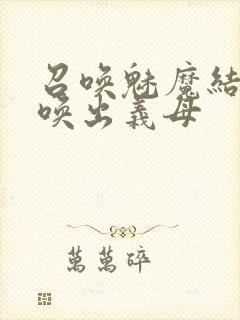 召唤魅魔結
唤出義母
萬萬碎